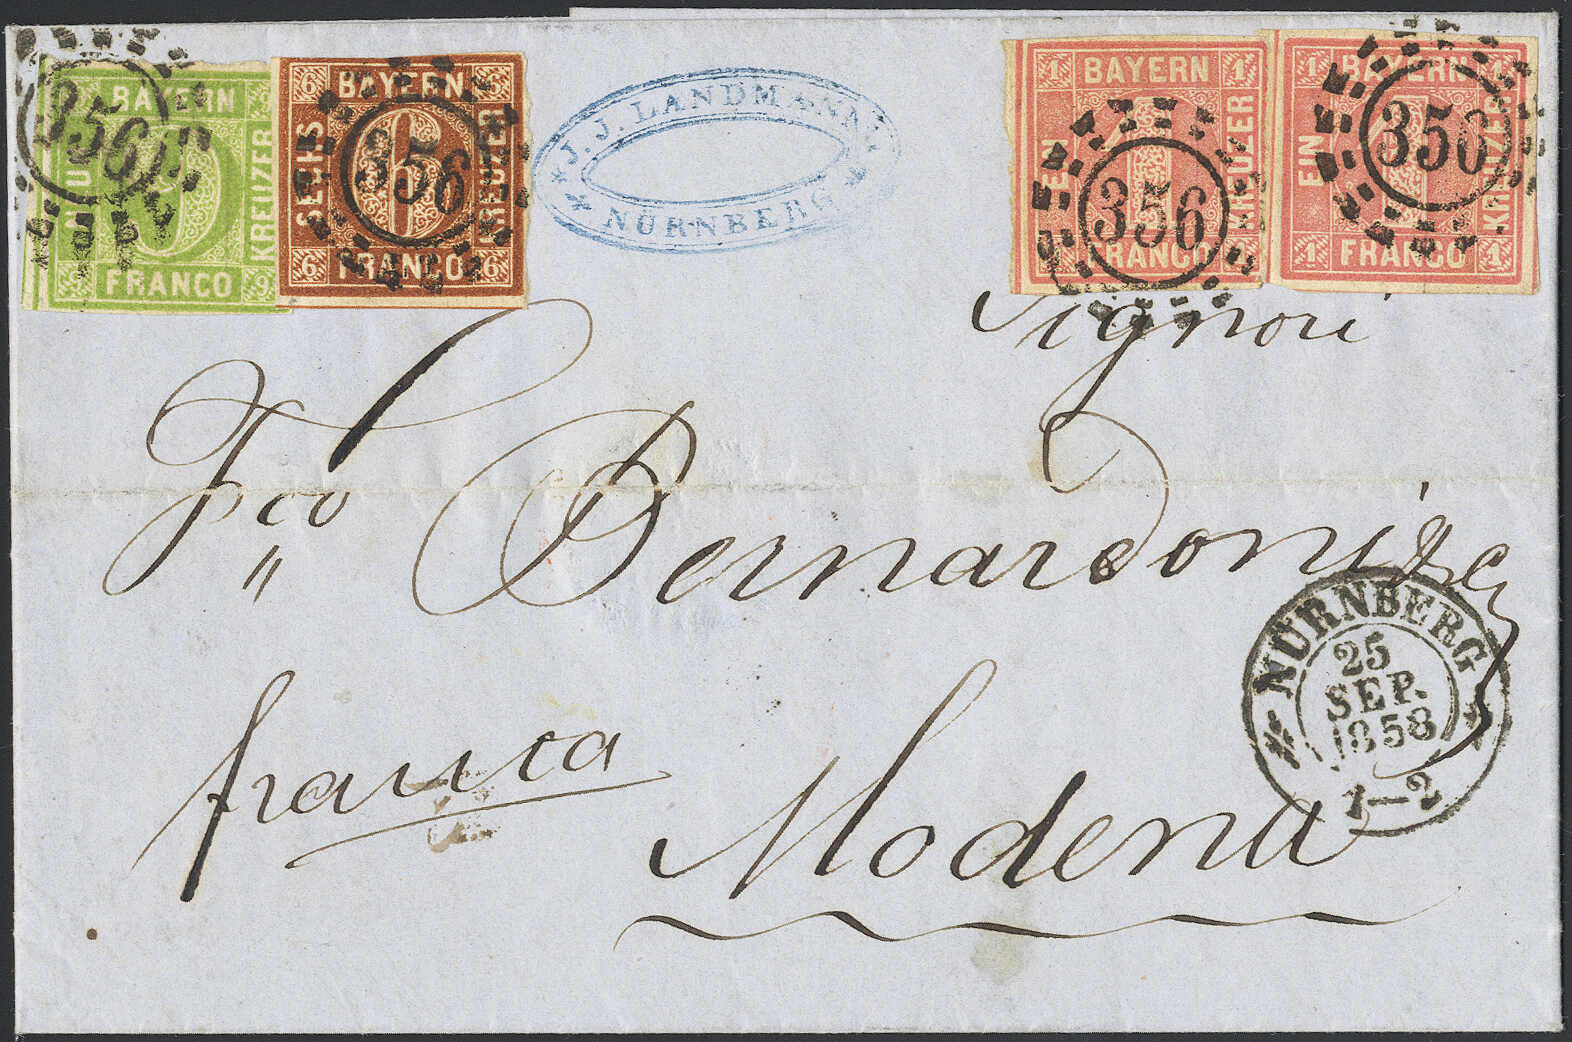 BAYERN
NEUN KREUZER
FRANCO
9
356
6 BAYERN 6
SECHS 6 KREUZER
6 FRANCO 6
356
J. J. LANDMANN
NÜRNBERG
1 BAYERN 1
EIN 1 KREUZER
FRANCO
356
1 BAYERN 1
EIN 1 KREUZER
1 FRANCO 1
356
Signori
Fco Bernardoni
franca
Modena
NÜRNBERG
25
SEP.
1858
1-2